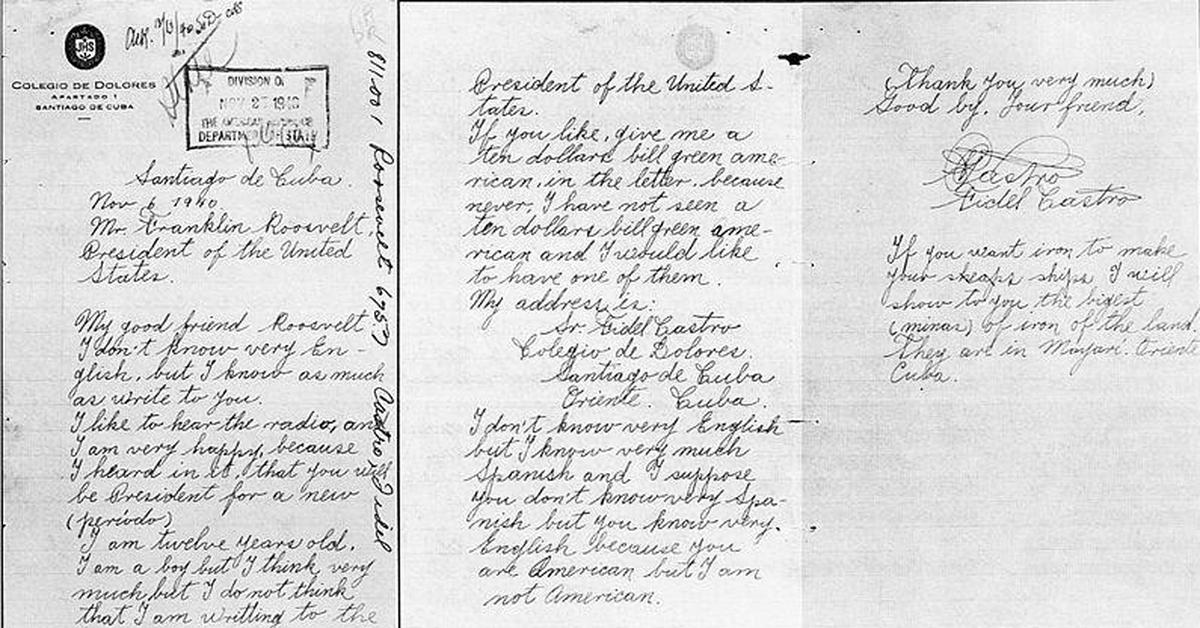 JHS
COLEGIO DE DOLORES
APARTADO 1
SANTIAGO DE CUBA
DIVISION O
NOV 27 1940
THE AMERICAN
DEPARTMENT OF STATE
811.001 Roosevelt Castro, Fidel
Santiago de Cuba.
Nov 6 1940.
Mr. Franklin Roosevelt,
President of the United
States.
My good friend Roosevelt
I don't know very En-
glish, but I know as much
as write to you.
I like to hear the radio, and
I am very happy, because
I heard in it, that you will
be President for a new
(período)
I am twelve years old.
I am a boy but I think very
much but I do not think
that I am writting to the
President of the United S-
tates.
If you like, give me a
ten dollars bill green ame-
rican, in the letter, because
never, I have not seen a
ten dollars bill green ame-
rican and I would like
to have one of them.
My address is:
Sr. Fidel Castro
Colegio de Dolores.
Santiago de Cuba
Oriente. Cuba.
I don't know very English
but I know very much
Spanish and I suppose
you don't know very Spa-
nish but you know very
English because you
are American but I am
not American.
(Thank you very much)
Good by. Your friend,
Castro
Fidel Castro
If you want iron to make
your ships I will
show to you the bigest
(minas) of iron of the land.
They are in Mayarí. Oriente
Cuba.